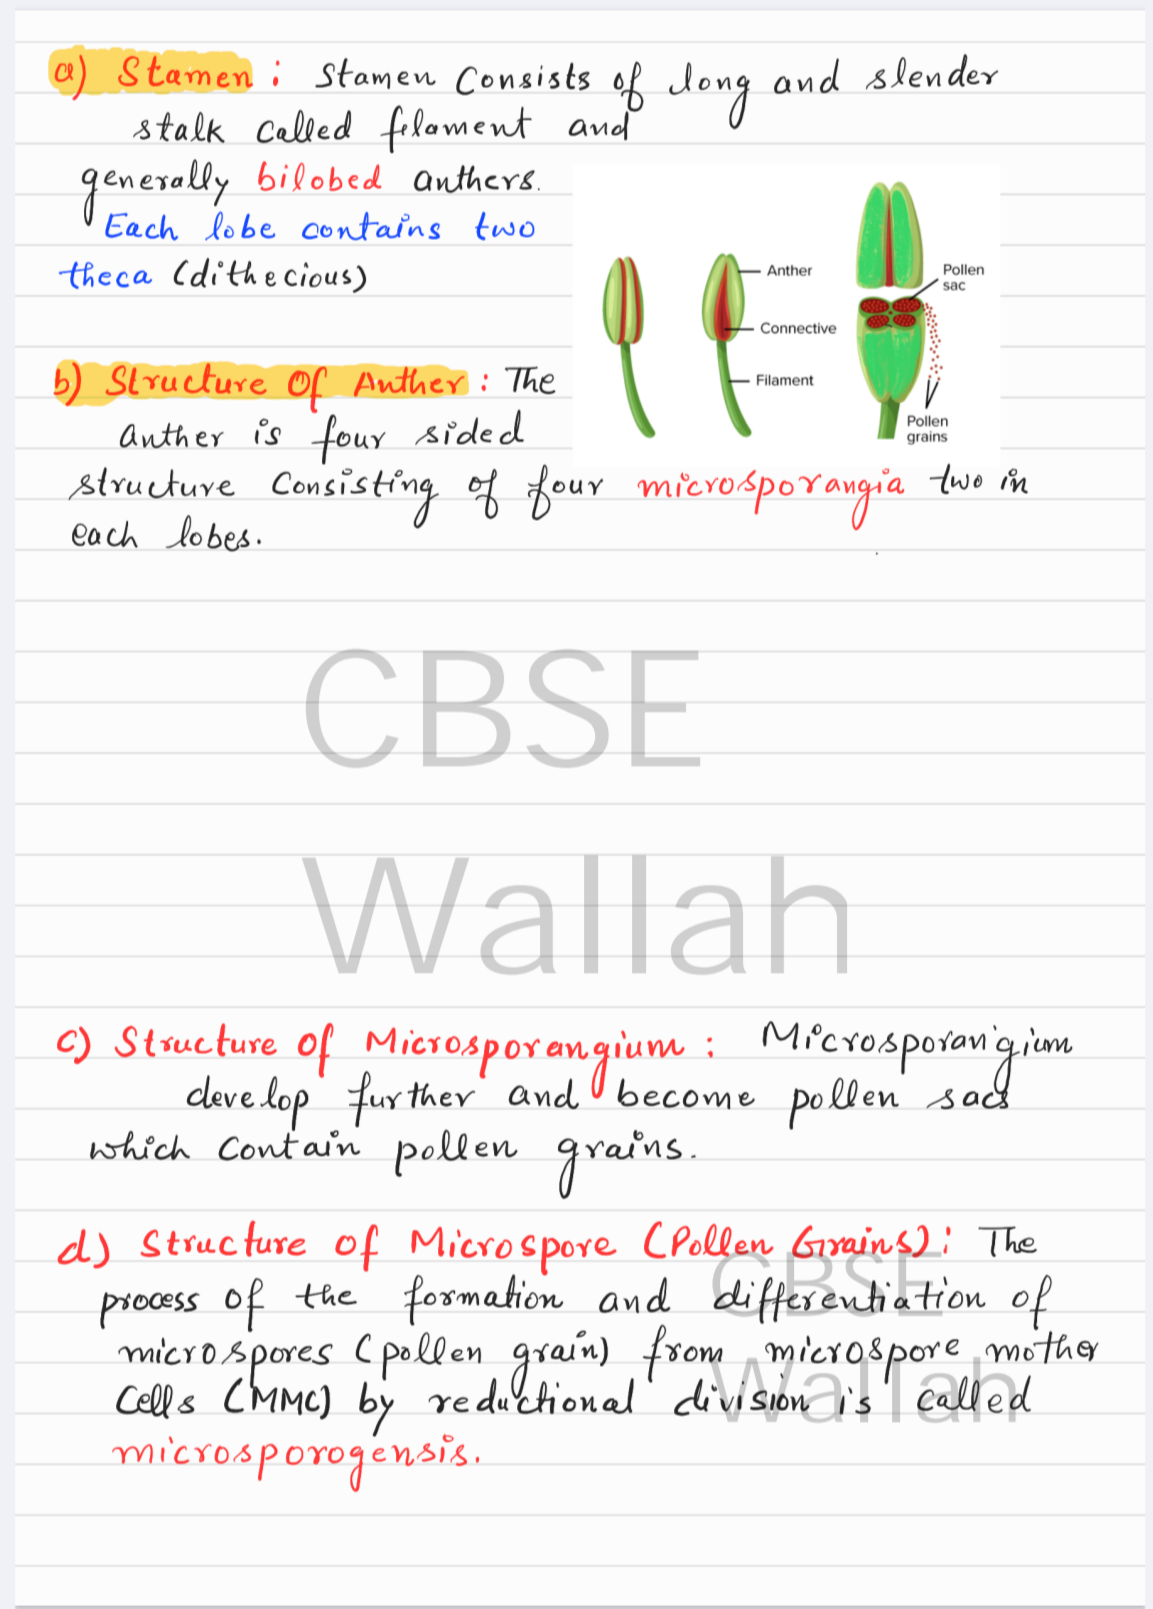 a) Stamen : Stamen Consists of long and slender
stalk called filament and
generally bilobed anthers.
Each lobe contains two
theca (dithecious)
Anther
Connective
Filament
Pollen
sac
Pollen
grains
b) Structure Of Anther : The
anther is four sided
structure Consisting of four microsporangia two in
each lobes.
CBSE
Wallah
c) Structure of Microsporangium : Microsporangium
develop further and become pollen sacs
which contain pollen grains.
d) Structure of Microspore (Pollen Grains) : The
process of the formation and differentiation of
microspores (pollen grain) from microspore mother
Cells (MMC) by reductional division is called
microsporogensis.
CBSE
Wallah